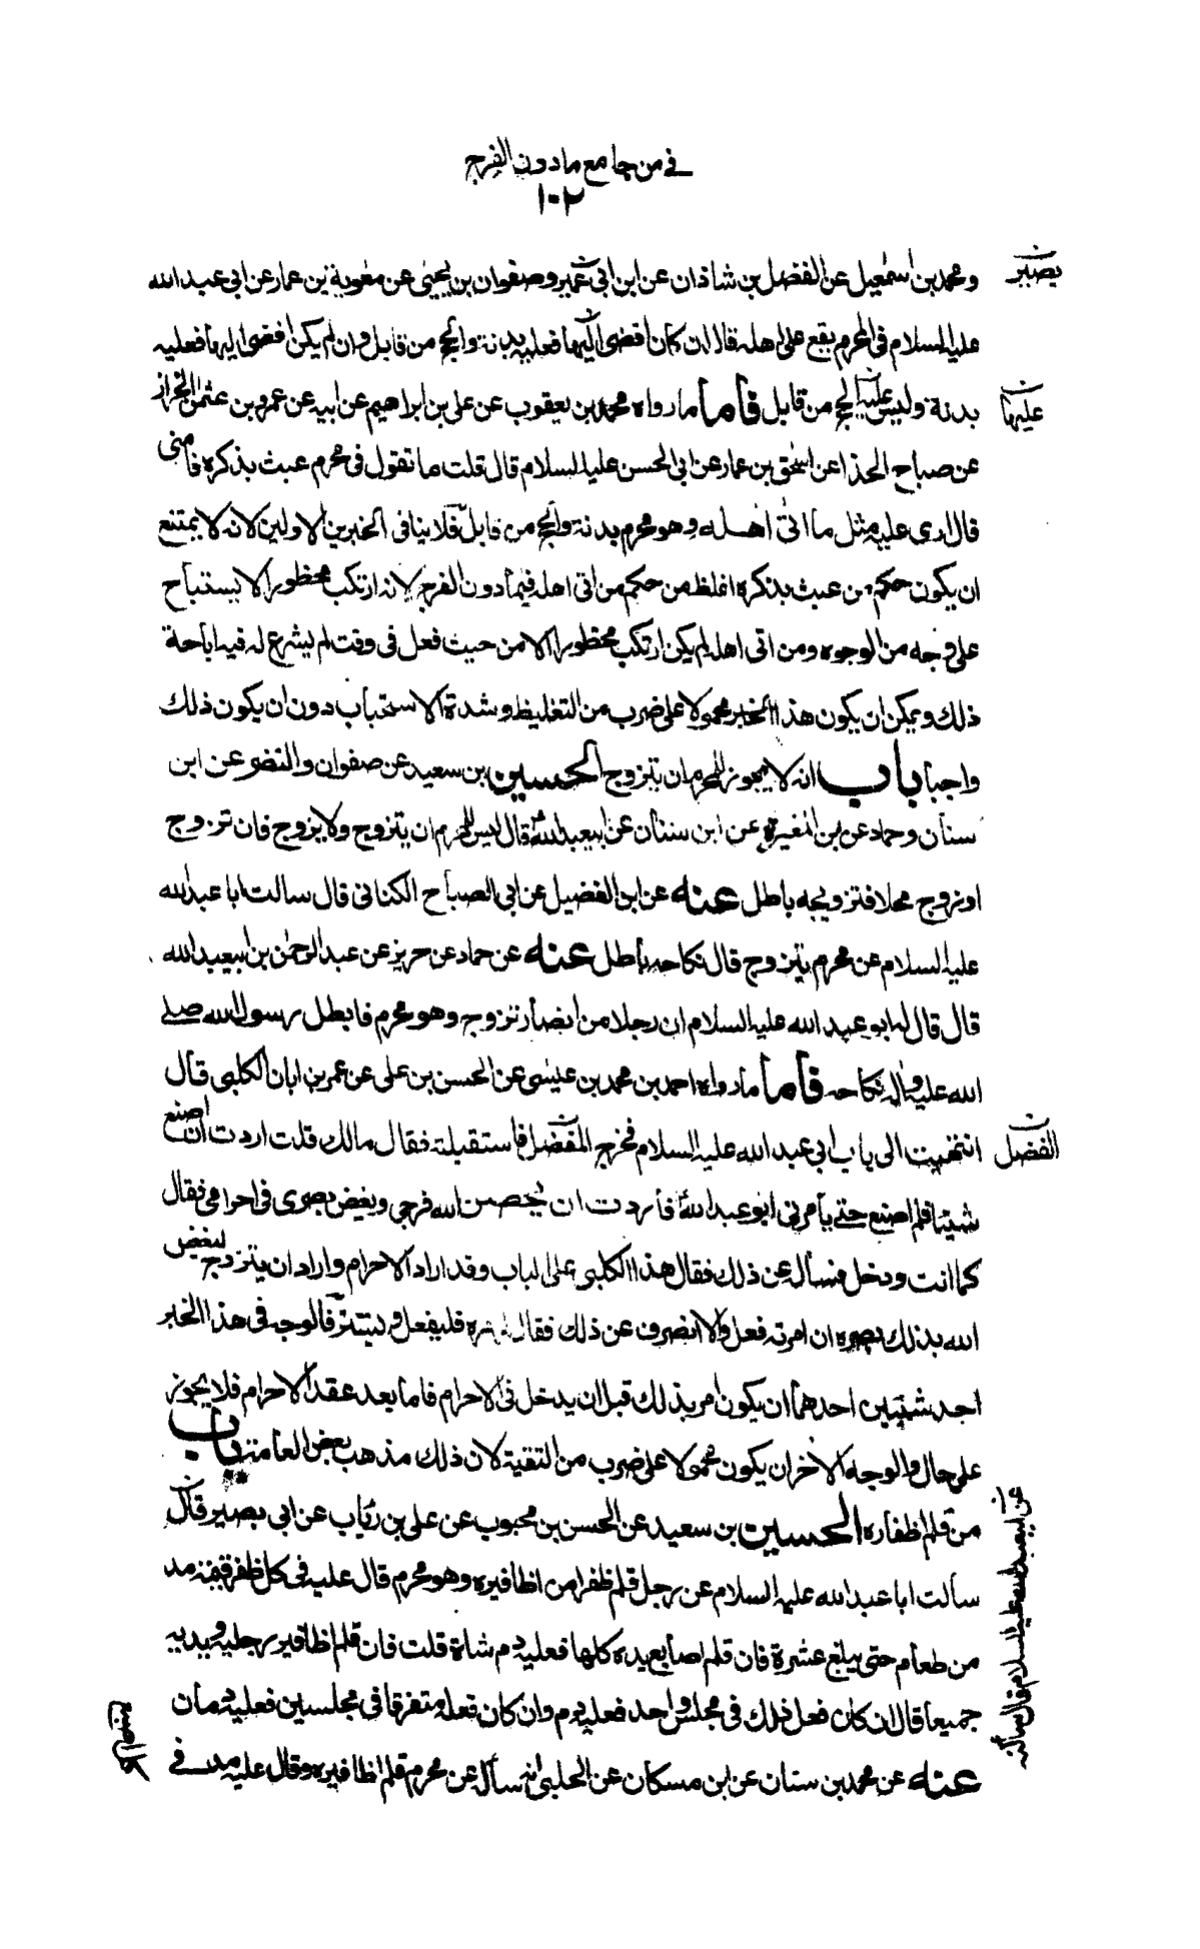 في من جامع مادون الفرج
١٠٢
ومحمد بن اسمعيل عن الفضل بن شاذان عن ابن ابى عمير وصفوان بن يحيى عن معوية بن عمار عن ابى عبد الله
عليه السلام فى المحرم يقع على اهله قال ان كان افضى اليها فعليه بدنة والحج من قابل وان لم يكن افضى اليها فعليه
بدنة وليس عليه الحج من قابل فاما ما رواه محمد بن يعقوب عن على بن ابراهيم عن ابيه عن عمرو بن عثمن الخراز
عن صباح الحذا عن اسحق بن عمار عن ابى الحسن عليه السلام قال قلت ما تقول فى محرم عبث بذكره فامنى
قال ارى عليه مثل ما اتى اهله وهو محرم بدنة والحج من قابل فلا ينافى الخبرين الاولين لانه لا يمتنع
ان يكون حكم من عبث بذكره اغلظ من حكم من اتى اهله فيما دون الفرج لانه ارتكب محظورا لا يستباح
على وجه من الوجوه ومن اتى اهله لم يكن ارتكب محظورا الا من حيث فعل فى وقت لم يشرع له فيه اباحة
ذلك ويمكن ان يكون هذا الخبر محمولا على ضرب من التغليظ وشدة الاستحباب دون ان يكون ذلك
واجبا باب انه لا يجوز للمحرم ان يتزوج الحسين بن سعيد عن صفوان والنضر عن ابن
سنان وحماد عن بن المغيرة عن ابن سنان عن ابيعبد الله قال ليس للمحرم ان يتزوج ولا يزوج فان تزوج
او زوج محلا فتزويجه باطل عنه عن ابن الفضيل عن ابى الصباح الكنانى قال سالت ابا عبد الله
عليه السلام عن محرم يتزوج قال نكاحه باطل عنه عن حماد عن حريز عن عبد الرحمن بن ابيعبد الله
قال قال له ابو عبد الله عليه السلام ان رجلا من الانصار تزوج وهو محرم فابطل رسول الله صلى
الله عليه واله نكاحه فاما ما رواه احمد بن محمد بن عيسى عن الحسن بن على عن عمر بن ابان الكلبى قال
انتهيت الى باب ابى عبد الله عليه السلام فخرج المفضل فاستقبلته فقال مالك قلت اردت ان اصنع
شيئا فلم اصنع حتى يأمرنى ابو عبد الله فاردت ان يحصن الله فرجى ويغض بصرى فى احرامى فقال
كما انت ودخل فسأله عن ذلك فقال هذا الكلبى على الباب وقد اراد الاحرام واراد ان يتزوج ليغض
الله بذلك بصره ان امرته فعل والا انصرف عن ذلك فقال لى مره فليفعل وليستتر فالوجه فى هذا الخبر
احد شيئين احدهما ان يكون امر بذلك قبل ان يدخل فى الاحرام فاما بعد عقد الاحرام فلا يجوز
على حال والوجه الاخر ان يكون محمولا على ضرب من التقية لان ذلك مذهب بعض العامة باب
من قلم اظفاره الحسين بن سعيد عن الحسن بن محبوب عن على بن رئاب عن ابى بصير قال
سألت ابا عبد الله عليه السلام عن رجل قلم ظفرا من اظافيره وهو محرم قال عليه فى كل ظفر قيمة مد
من طعام حتى يبلغ عشرة فان قلم اصابع يده كلها فعليه دم شاة قلت فان قلم اظافير رجليه ويديه
جميعا قال ان كان فعل ذلك فى مجلس واحد فعليه دم وان كان فعله متفرقا فى مجلسين فعليه دمان
عنه عن محمد بن سنان عن ابن مسكان عن الحلبى انه سأله عن محرم قلم اظافيره وقال عليه مد فى
عليها
الفضل
عن ابيعبد الله عليه السلام قال سألته